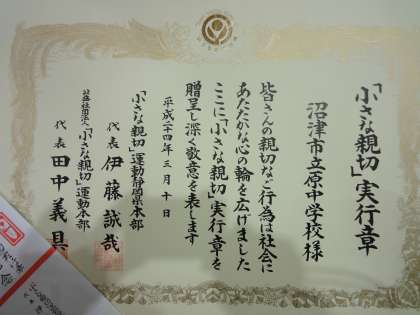 「小さな親切」実行章
沼津市立原中学校様
皆さんの親切なご行為は社会に
あたたかな心の輪を広げました
ここに「小さな親切」実行章を
贈呈し深く敬意を表します
平成二十四年三月十日
「小さな親切」運動静岡県本部
代表 伊藤誠哉
公益社団法人「小さな親切」運動本部
代表 田中義具